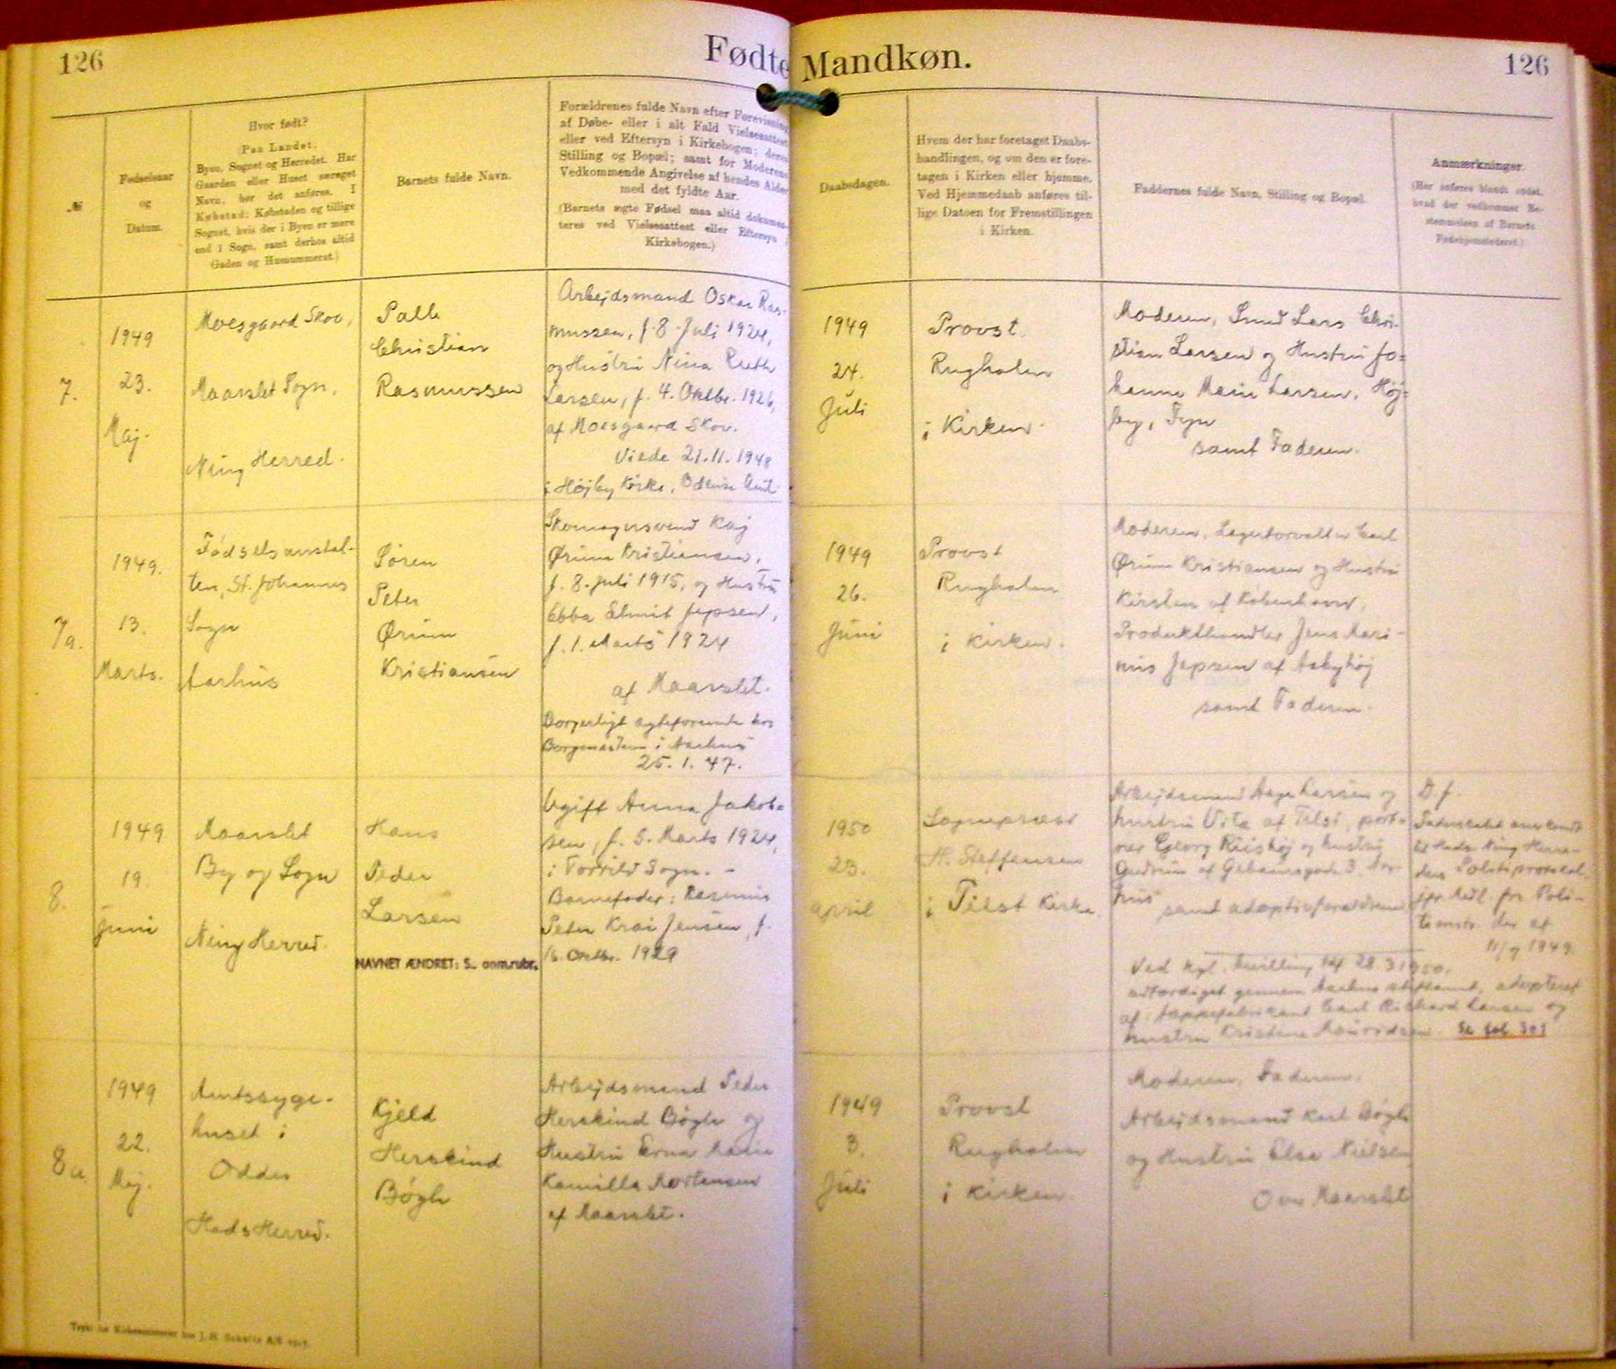 126
Fødte Mandkøn.
126
№
Fødselsaar
og
Datum.
Hvor født?
(Paa Landet:
Byen, Sognet og Herredet. Har
Gaarden eller Huset særeget
Navn, bør det anføres. I
Købstad: Købstaden og tillige
Sognet, hvis der i Byen er mere
end 1 Sogn, samt derhos altid
Gaden og Husnummeret.)
Barnets fulde Navn.
Forældrenes fulde Navn efter Forevisning
af Døbe- eller i alt Fald Vielsesattest
eller ved Eftersyn i Kirkebogen; deres
Stilling og Bopæl; samt for Moderens
Vedkommende Angivelse af hendes Alder
med det fyldte Aar.
(Barnets ægte Fødsel maa altid dokumen-
teres ved Vielsesattest eller Eftersyn i
Kirkebogen.)
Daabsdagen.
Hvem der har foretaget Daabs-
handlingen, og om den er fore-
tagen i Kirken eller hjemme.
Ved Hjemmedaab anføres til-
lige Datoen for Fremstillingen
i Kirken.
Faddernes fulde Navn, Stilling og Bopæl.
Anmærkninger.
(Her anføres blandt andet,
hvad der vedkommer Be-
stemmelsen af Barnets
Fødehjemsteder.)
7.
1949
23.
Maj.
Moesgaard Skov,
Maarslet Sogn,
Ning Herred.
Palle
Christian
Rasmussen
Arbejdsmand Oskar Ras-
mussen, f. 8. Juli 1924,
og Hustru Nina Ruth
Larsen, f. 4. Oktbr. 1926,
af Moesgaard Skov.
Viede 21.11.1948
i Højby Kirke, Odense Amt.
1949
24.
Juli
Provst
Rugholm
i Kirken.
Moderen, Smed Lars Chri-
stian Larsen og Hustru Jo-
hanne Marie Larsen, Høj-
by, Fyn
samt Faderen.
7a.
1949.
13.
Marts.
Fødselsanstal-
ten, St. Johannes
Sogn
Aarhus
Søren
Peter
Ørum
Kristiansen
Skomagersvend Kaj
Ørum Kristiansen,
f. 8. Juli 1915, og Hustru
Ebba Jepsen,
f. 1. Marts 1924
af Maarslet.
Borgerligt ægteforenede hos
Borgmesteren i Aarhus
25. 1. 47.
1949
26.
Juni
Provst
Rugholm
i Kirken.
Moderen, Lagerforvalter Carl
Ørum Kristiansen og Hustru
Kirsten af København,
Produkthandler Jens Mari-
nus Jepsen af Aabyhøj
samt Faderen.
8.
1949
19.
Juni
Maarslet
By og Sogn
Ning Herred.
Hans
Peder
Larsen
NAVNET ÆNDRET: S. anm.rubr.
Ugift Anna Jakob-
sen, f. 5. Marts 1924,
i Torrild Sogn. -
Barnefader: Rasmus
Peter Jensen, f.
16. Oktbr. 1929
1950
23.
april
Sognepræst
H. Steffensen
i Tilst Kirke.
Arbejdsmand Aage Larsen og
hustru Vita af Tilst, port-
ør Georg Riishøj og hustru
Gudrun af 3, Aar-
hus
samt adoptivforældrene
Ved kgl. bevilling af 28.3.1950,
udfærdiget gennem Aarhus stiftamt, adopteret
af fabrikant Carl Richard Larsen og
hustru Kristine Se fol. 301
D. f.
Fødselen anmeldt
til Hads-Ning Herre-
ders Politiprotokol
jfr. Medd. fra Poli-
timstr. der af
11/7 1949.
8a.
1949
22.
Maj.
Amtssyge-
huset i
Odder
Hads Herred.
Kjeld
Herskind
Bøgh
Arbejdsmand Peder
Herskind Bøgh og
Hustru Erna Marie
Kamilla Mortensen
af Maarslet.
1949
3.
Juli
Provst
Rugholm
i Kirken.
Moderen, Faderen.
Arbejdsmand Karl Bøgh
og Hustru Else Nielsen
Over Maarslet